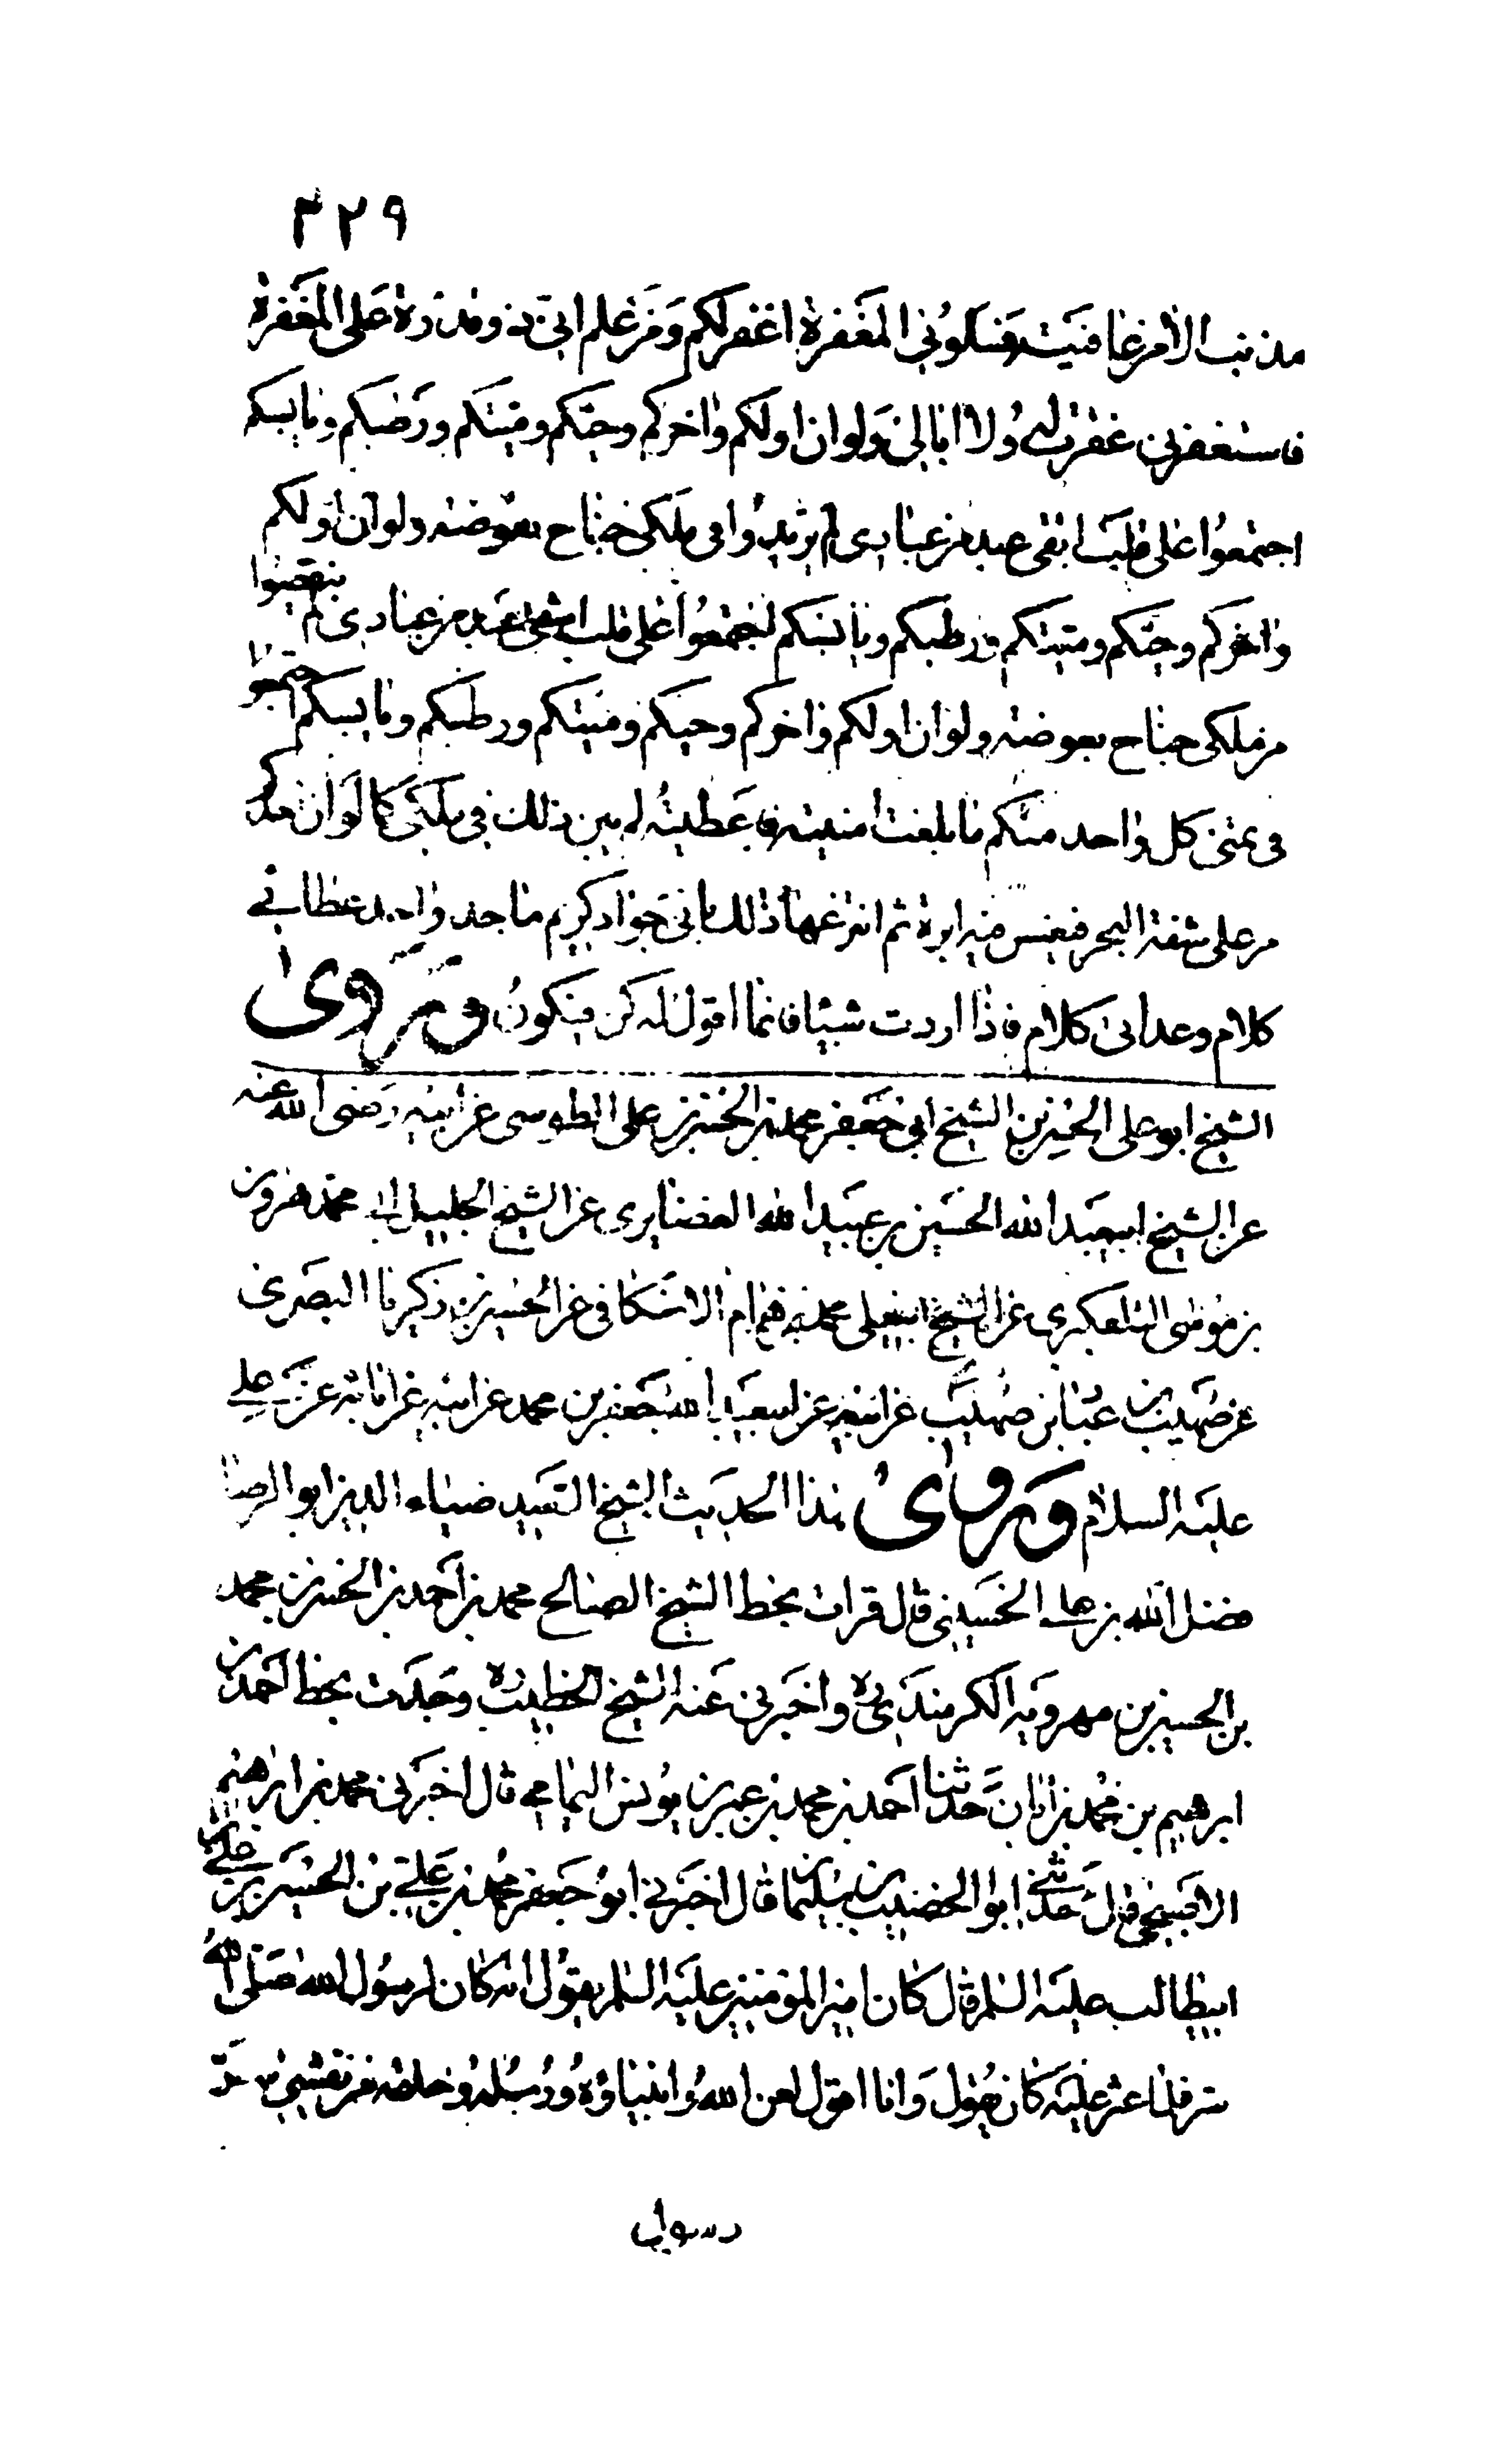 ٣٢٩
مذنب الا من عافيت فسلوني المغفرة اغفر لكم و من علم اني ذو قدرة على المغفرة
فاستغفرني غفرت له ولا ابالي ولو ان اولكم واخركم وحيكم وميتكم ورطبكم ويابسكم
اجتمعوا على قلب اتقى عبد من عبادي لم يزيدوا في ملكي جناح بعوضة ولو ان اولكم
واخركم وحيكم وميتكم ورطبكم ويابسكم اجتمعوا على قلب اشقى عبد من عبادي لم ينقصوا
من ملكي جناح بعوضة ولو ان اولكم واخركم وحيكم وميتكم ورطبكم ويابسكم اجتمعوا
في تمنى كل واحد منكم ما بلغت امنيته فاعطيته لم يبن ذلك في ملكي كما لو ان احدكم
مر على شفة البحر فغمس فيه ابرة ثم انتزعها ذلك باني جواد كريم ماجد واجد عطائي
كلام وعدابي كلام فاذا اردت شيئا فانما اقول له كن فيكون وروى
الشيخ ابو علي الحسن بن الشيخ ابي جعفر محمد بن الحسن بن علي الطوسي عن ابيه رضى الله عنه
عن الشيخ ابيعبد الله الحسين بن عبيد الله الغضايري عن الشيخ الجليل ابي محمد هرون
بن موسى التلعكبري عن الشيخ ابيعلي محمد بن همام الاسكافي عن الحسن بن زكريا البصري
عن صهيب بن عباد بن صهيب عن ابيه عن ابيعبد الله جعفر بن محمد عن ابيه عن ابائه عن علي
عليه السلام وروى هذا الحديث الشيخ السعيد ضياء الدين ابو الرضا
فضل الله بن علي الحسيني قال قرات بخط الشيخ الصالح محمد بن احمد بن الحسن بن محمد
بن الحسين بن مهرويه الكرمندي ره واخبرني عنه الشيخ الخطيب ره وجدت بخط احمد بن
ابرهيم بن محمد بن ابان حدثنا احمد بن محمد بن عمر بن يونس اليمامي قال اخبرني محمد بن ابرهيم
قال حدثني ابو الخصيب بن سليمان قال اخبرني ابو جعفر محمد بن علي بن الحسين بن علي بن
ابيطالب عليه السلم قال كان امير المؤمنين عليه السلم يقول انه كان لرسول الله صلى الله
سر قلما عثر عليه كان يقول وانا اقول لعن الله وانبياؤه ورسله وخلقه مفشي سر
رسول